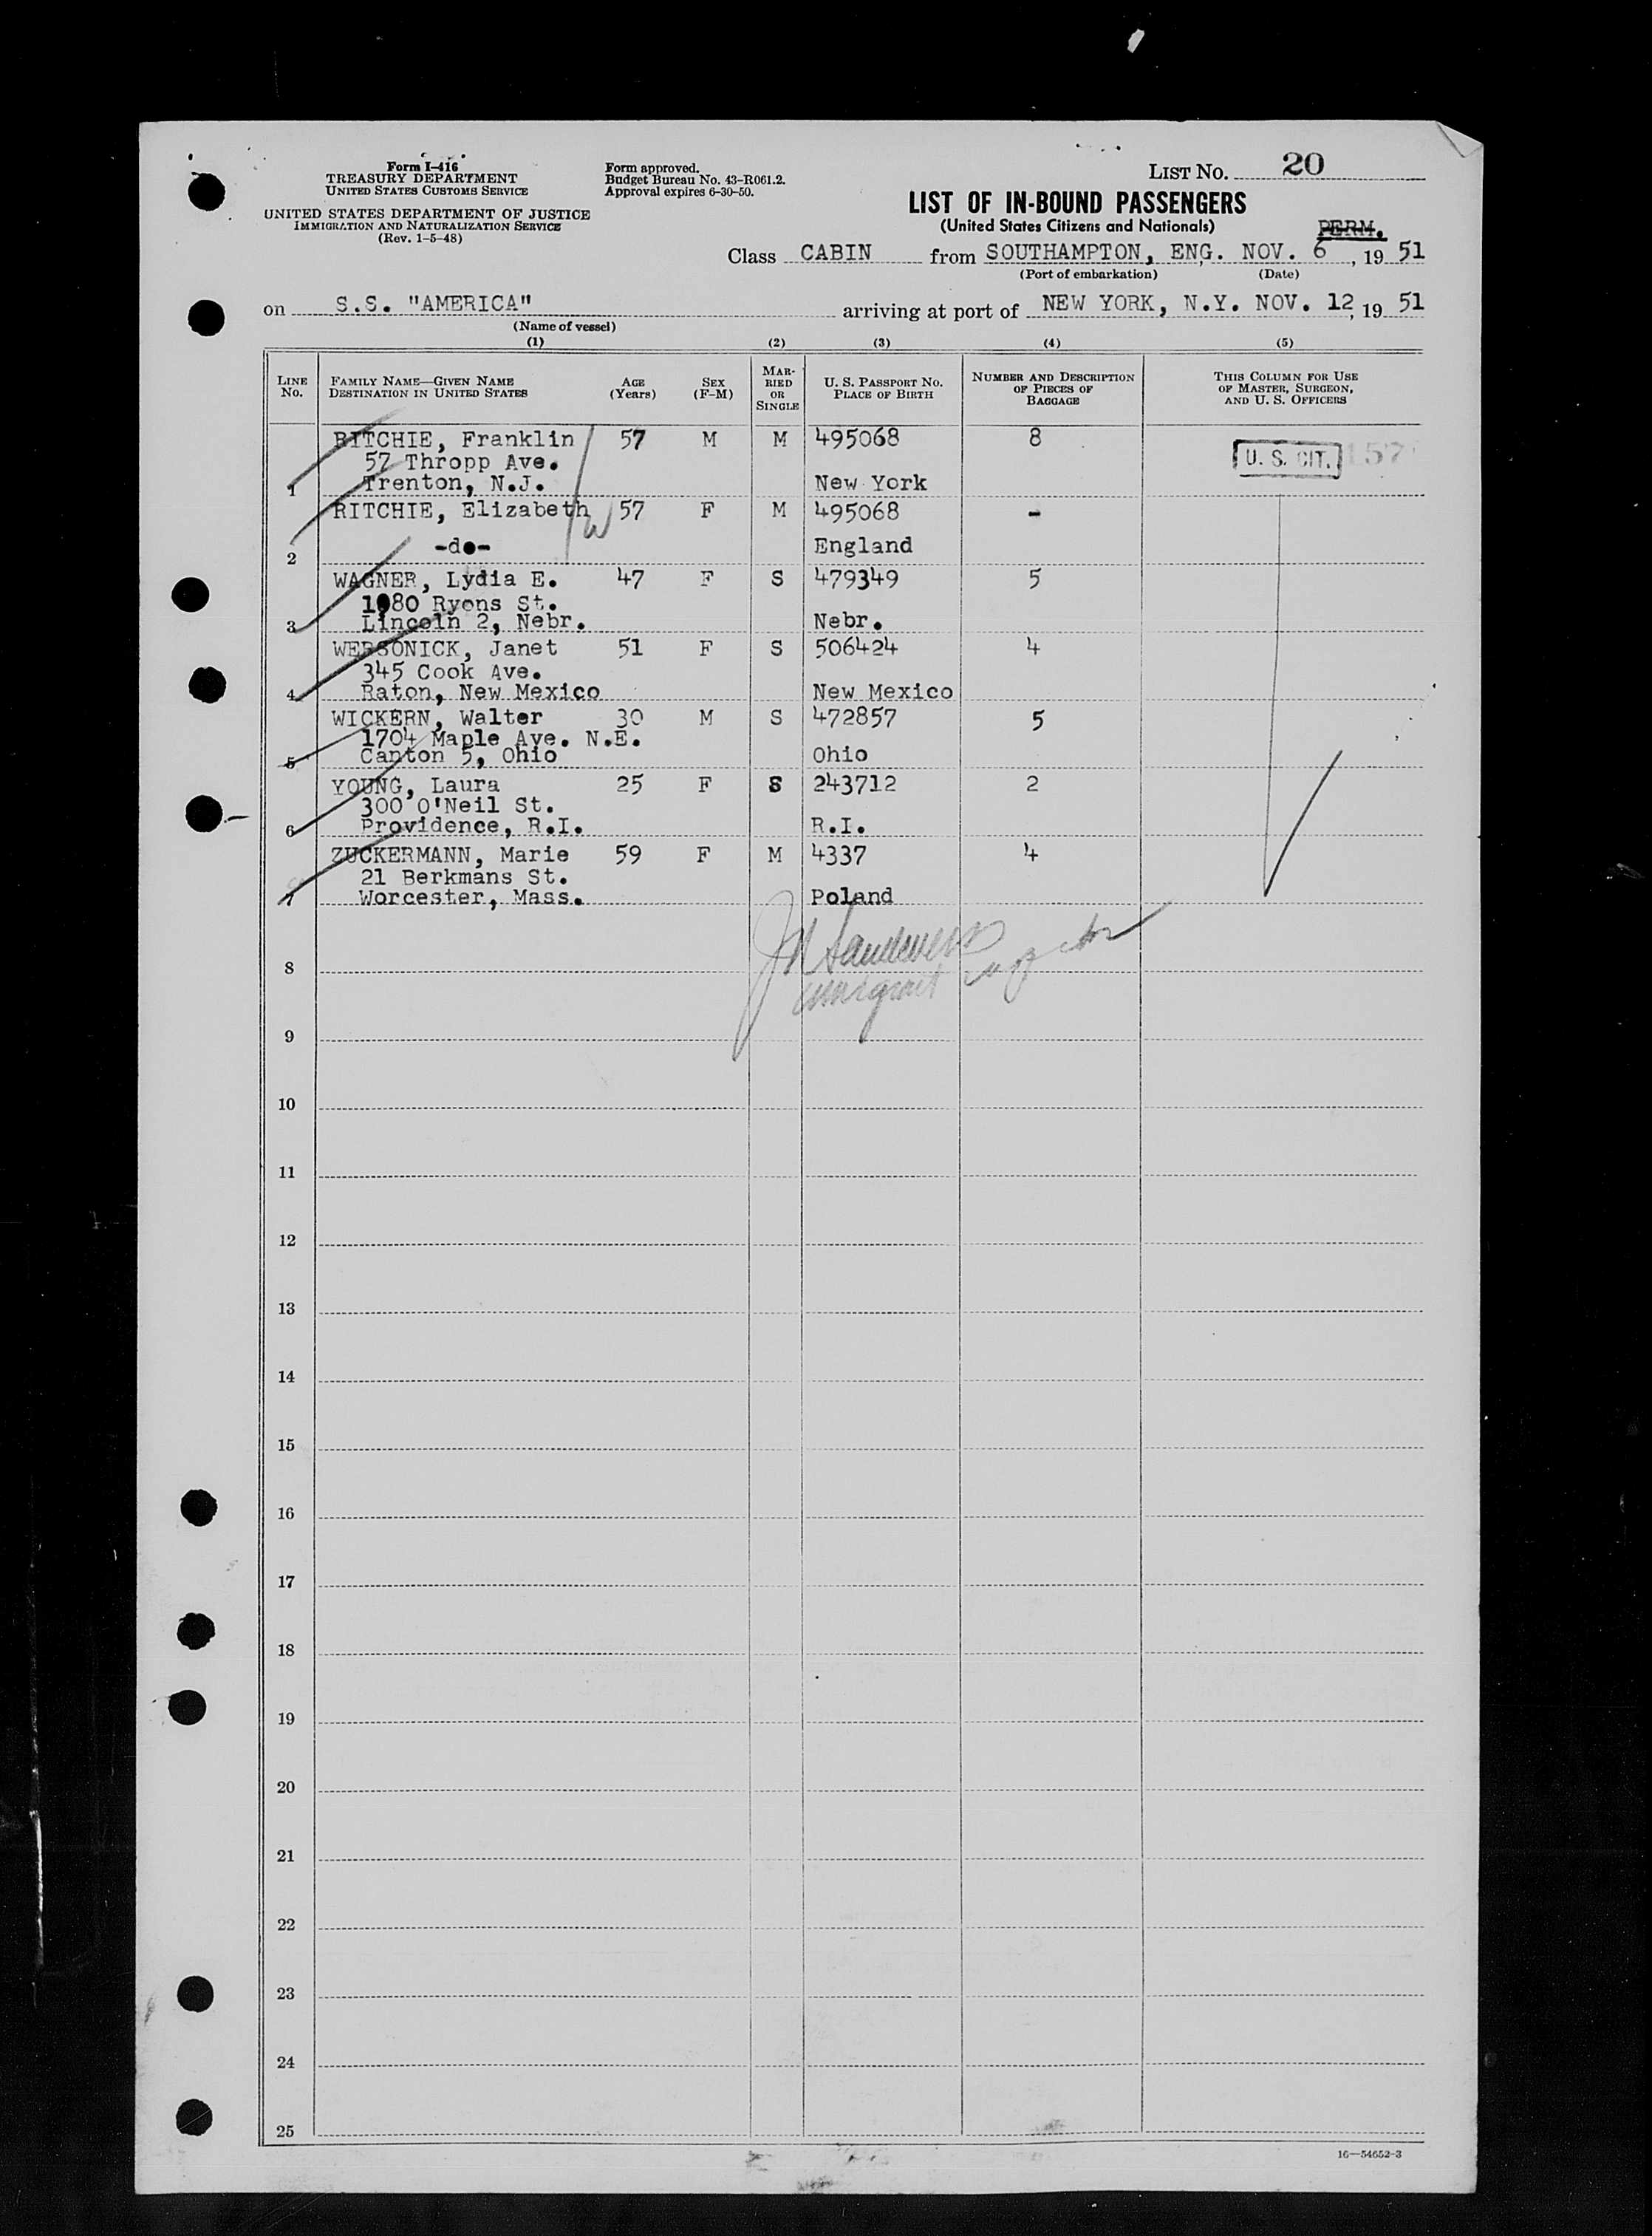 Form I-416
TREASURY DEPARTMENT
UNITED STATES CUSTOMS SERVICE
UNITED STATES DEPARTMENT OF JUSTICE
IMMIGRATION AND NATURALIZATION SERVICE
(Rev. 1-5-48)
Form approved.
Budget Bureau No. 43-R061.2.
Approval expires 6-30-50.
LIST No. 20
LIST OF IN-BOUND PASSENGERS
(United States Citizens and Nationals)
PERM.
Class CABIN from SOUTHAMPTON, ENG. NOV. 6, 19 51
(Port of embarkation) (Date)
on S.S. "AMERICA" arriving at port of NEW YORK, N.Y. NOV. 12, 19 51
(Name of vessel)
(1) (2) (3) (4) (5)
LINE No. FAMILY NAME—GIVEN NAME DESTINATION IN UNITED STATES AGE (Years) SEX (F-M) MARRIED OR SINGLE U. S. PASSPORT NO. PLACE OF BIRTH NUMBER AND DESCRIPTION OF PIECES OF BAGGAGE THIS COLUMN FOR USE OF MASTER, SURGEON, AND U. S. OFFICERS
RITCHIE, Franklin 57 M M 495068 8
57 Thropp Ave. U. S. CIT. 157
1 Trenton, N.J. New York
RITCHIE, Elizabeth 57 F M 495068 -
2 -do- England
WAGNER, Lydia E. 47 F S 479349 5
1080 Ryons St.
3 Lincoln 2, Nebr. Nebr.
WERSONICK, Janet 51 F S 506424 4
345 Cook Ave.
4 Raton, New Mexico New Mexico
WICKERN, Walter 30 M S 472857 5
1704 Maple Ave. N.E.
5 Canton 5, Ohio Ohio
YOUNG, Laura 25 F S 243712 2
300 O'Neil St.
6 Providence, R.I. R.I.
ZUCKERMANN, Marie 59 F M 4337 4
21 Berkmans St.
7 Worcester, Mass. Poland
8
9
10
11
12
13
14
15
16
17
18
19
20
21
22
23
24
25
16—54652-3